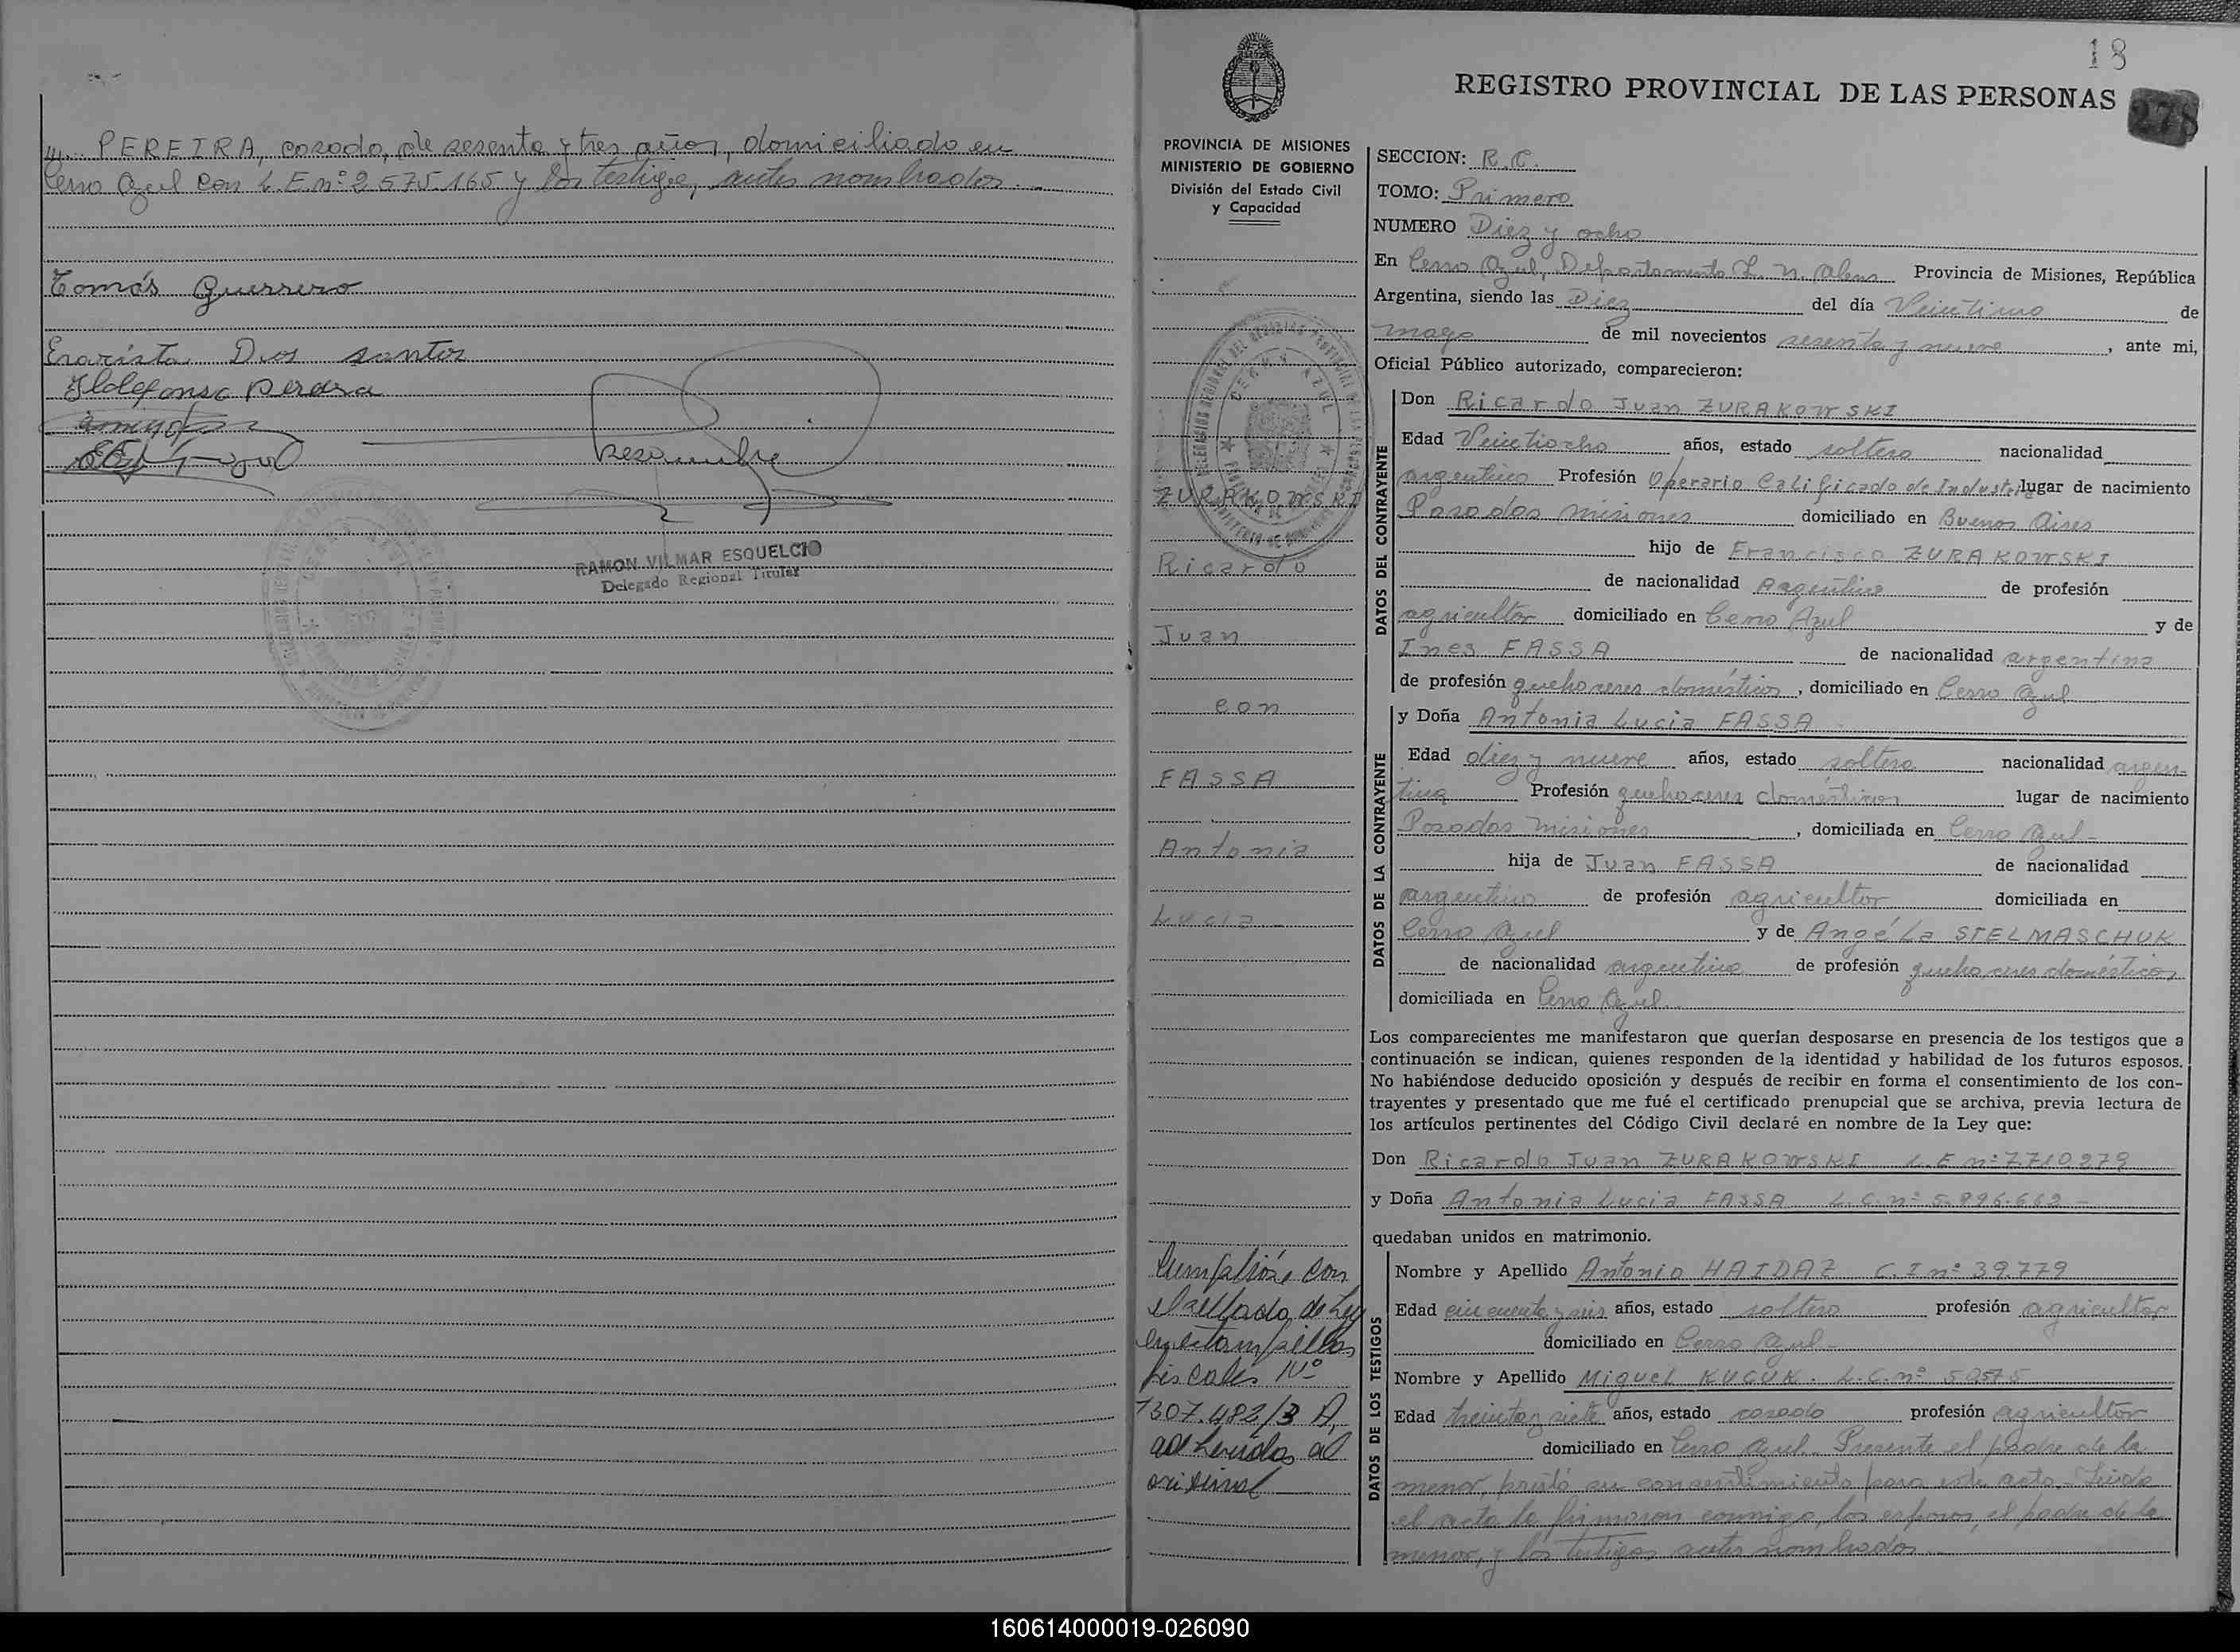 PEREIRA, casado, de sesenta y tres años, domiciliado en
Cerro Azul con L.E.nº 2.575.165 y los testigos, antes nombrados.
Tomás Guerrero
Dos santos
Ildefonso Pereira
RAMON VILMAR ESQUELCIO
Delegado Regional Titular
18
REGISTRO PROVINCIAL DE LAS PERSONAS
278
PROVINCIA DE MISIONES
MINISTERIO DE GOBIERNO
División del Estado Civil
y Capacidad
ZURAKOWSKI
Ricardo
Juan
con
FASSA
Antonia
Lucia
Cumplióse con
el sellado de Ley
en estampillas
fiscales Nº
1307.482/3 A,
adheridas al
original
SECCION: R.C.
TOMO: Primero
NUMERO Diez y ocho
En Cerro Azul, Departamento L. N. Alem Provincia de Misiones, República
Argentina, siendo las Diez del día Veintiuno de
mayo de mil novecientos sesenta y nueve, ante mi,
Oficial Público autorizado, comparecieron:
DATOS DEL CONTRAYENTE
Don Ricardo Juan ZURAKOWSKI
Edad Veintiocho años, estado soltero nacionalidad
argentino Profesión Operario Calificado de Industria lugar de nacimiento
Posadas Misiones domiciliado en Buenos Aires
hijo de Francisco ZURAKOWSKI
de nacionalidad Argentino de profesión
agricultor domiciliado en Cerro Azul y de
Ines FASSA de nacionalidad argentina
de profesión quehaceres domésticos, domiciliado en Cerro Azul
DATOS DE LA CONTRAYENTE
y Doña Antonia Lucia FASSA
Edad diez y nueve años, estado soltera nacionalidad argen-
tina Profesión quehaceres domésticos lugar de nacimiento
Posadas Misiones, domiciliada en Cerro Azul-
hija de Juan FASSA de nacionalidad
argentino de profesión agricultor domiciliada en
Cerro Azul y de Angéla STELMASCHUK
de nacionalidad argentina de profesión quehaceres domésticos
domiciliada en Cerro Azul
Los comparecientes me manifestaron que querían desposarse en presencia de los testigos que a
continuación se indican, quienes responden de la identidad y habilidad de los futuros esposos.
No habiéndose deducido oposición y después de recibir en forma el consentimiento de los con-
trayentes y presentado que me fué el certificado prenupcial que se archiva, previa lectura de
los artículos pertinentes del Código Civil declaré en nombre de la Ley que:
Don Ricardo Juan ZURAKOWSKI L.E nº 7.710.279
y Doña Antonia Lucia FASSA L.C.nº 5.896.662-
quedaban unidos en matrimonio.
DATOS DE LOS TESTIGOS
Nombre y Apellido Antonio HAIDAZ C.I nº 39.779
Edad cincuenta y seis años, estado soltero profesión agricultor,
domiciliado en Cerro Azul-
Nombre y Apellido Miguel KUCUK. L.C.nº 50575
Edad treinta y siete años, estado casado profesión agricultor
domiciliado en Cerro Azul. Presente el padre de la
menor, prestó su consentimiento para este acto. Leída
el acta la firmaron conmigo, los esposos, el padre de la
menor, y los testigos antes nombrados.
160614000019-026090